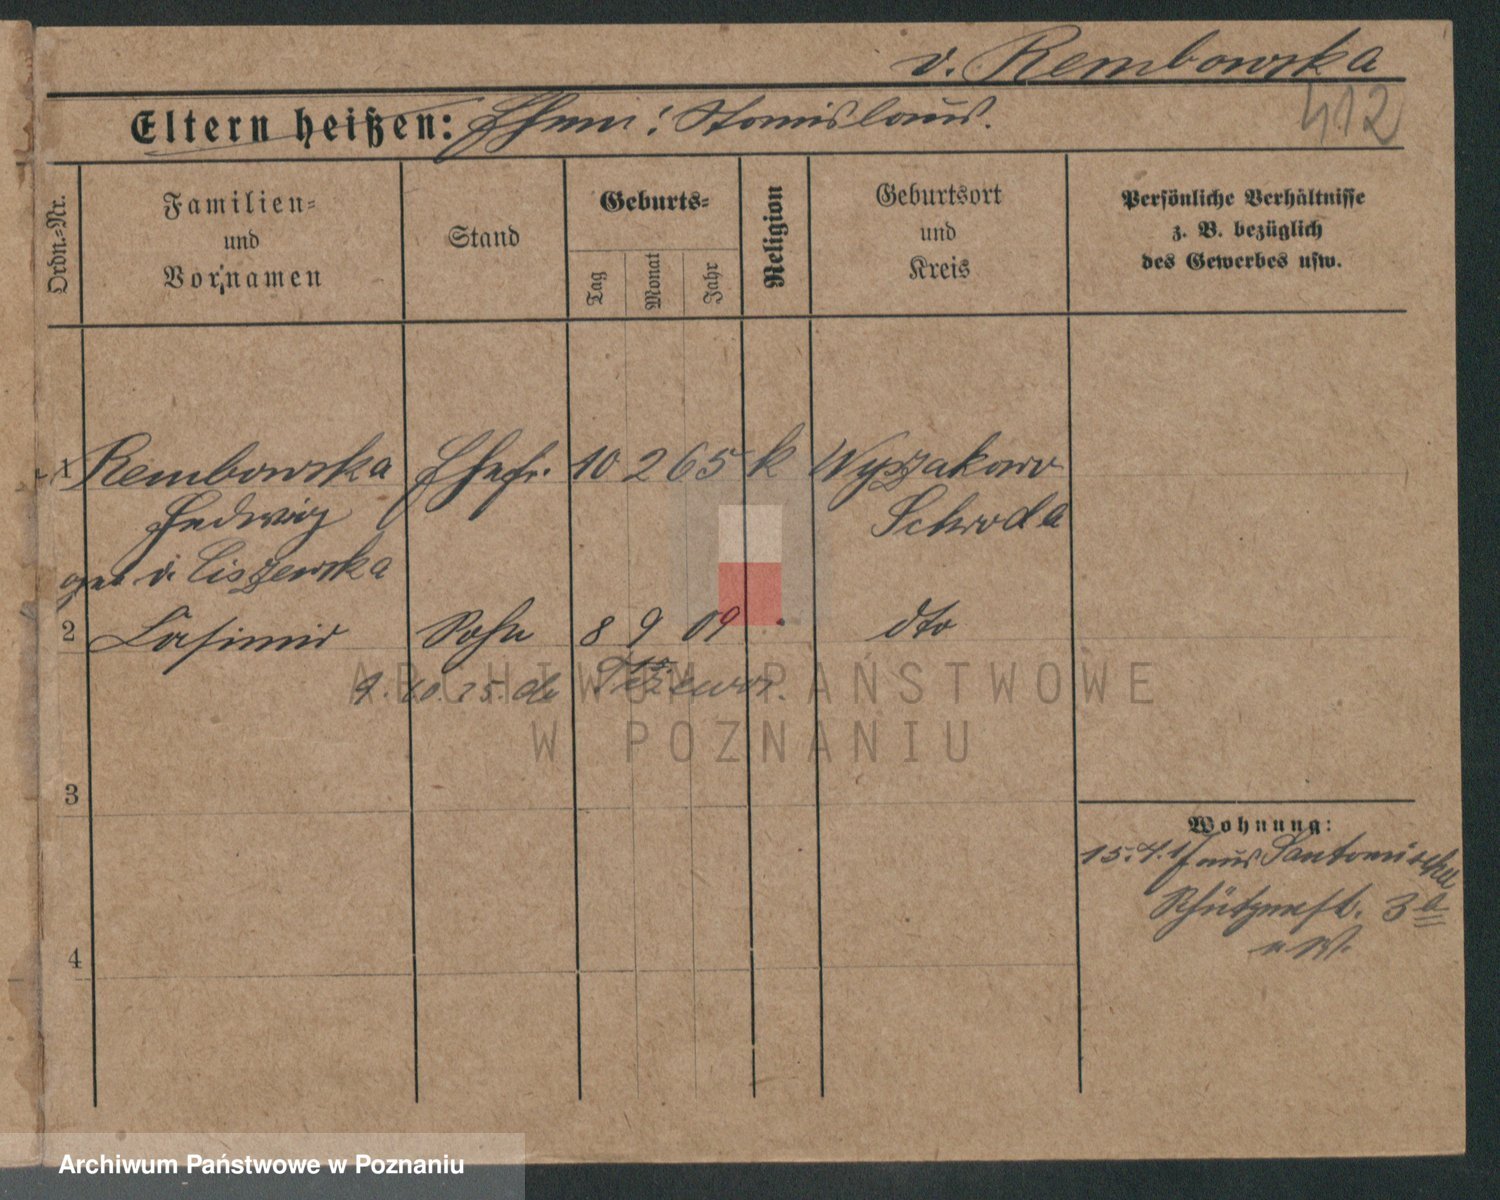 v. Rembowska
412
Eltern heißen: Ehem: Stanislaus.
Ordn.-Nr.
Familien-
und
Vornamen
Stand
Geburts-
Tag
Monat
Jahr
Religion
Geburtsort
und
Kreis
Persönliche Verhältnisse
z. B. bezüglich
des Gewerbes usw.
1 Rembowska Ehefr. 10 2 65 k Wyszakowo
Hedwig Schroda
geb v. Ciszewska
2 Casimir Sohn 8 9 09 dto
9. 10. 15.
3
Wohnung:
15.4.17 aus Santomischel
Schützenstr. 3a
4
ARCHIWUM PAŃSTWOWE
W POZNANIU
Archiwum Państwowe w Poznaniu